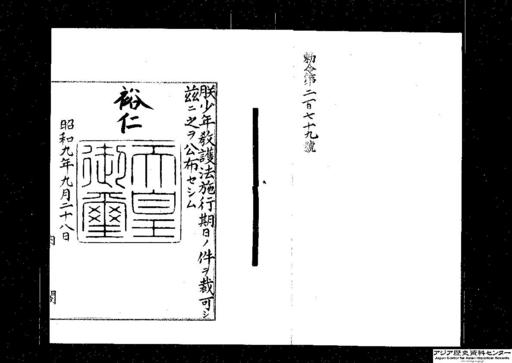 勅令第二百七十九號
朕少年教護法施行期日ノ件ヲ裁可シ
茲ニ之ヲ公布セシム
裕仁
天皇
御璽
昭和九年九月二十八日
内閣
アジア歴史資料センター
Japan Center for Asian Historical Records